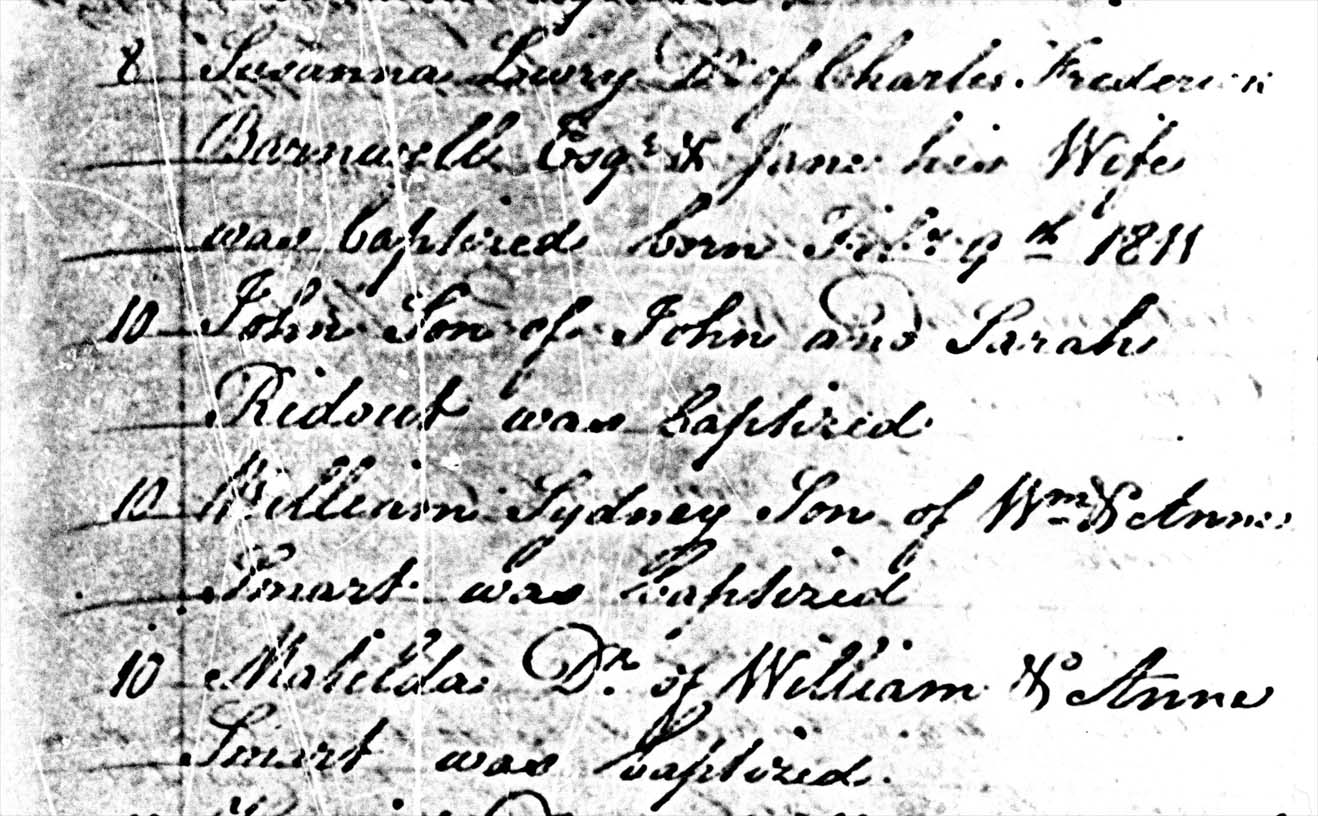 8 Susanna Lowry Dr of Charles Frederick
Barnwell Esqr & Jane his Wife
was baptized born Feby 9th 1811
10 John Son of John and Sarah
Ridout was baptized
10 William Sydney Son of Wm & Anne
Smart was baptized
10 Matilda Dr of William & Anne
Smart was baptized.